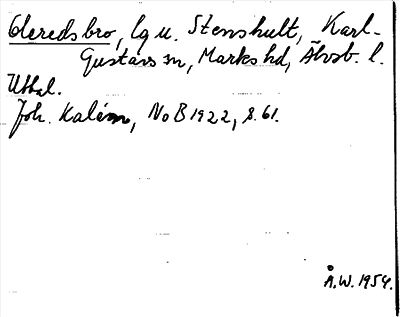 Oleredsbro, lg u. Stenshult, Karl-
Gustavs sn, Marks hd, Älvsb. l.
Uttal.
Joh. Kalén, NoB 1922, s. 61.
Å.W. 1954.